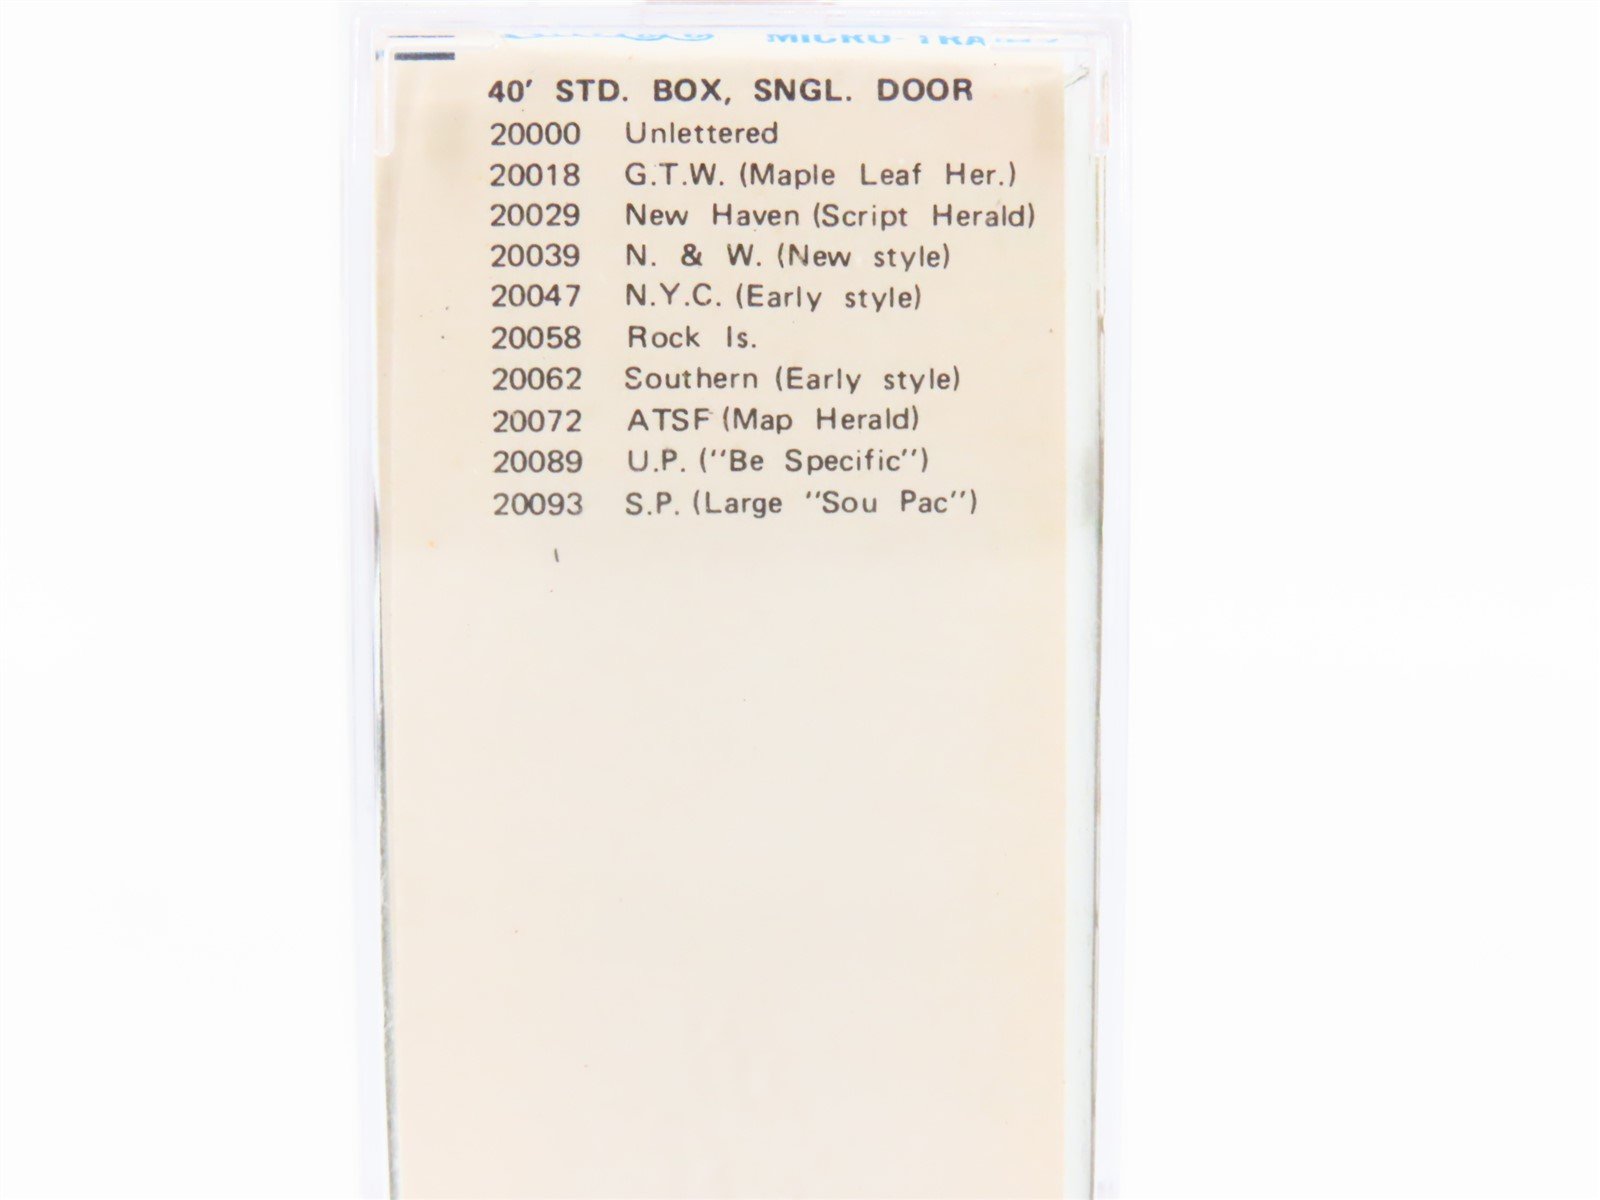 MICRO-TRAINS
40' STD. BOX, SNGL. DOOR
20000 Unlettered
20018 G.T.W. (Maple Leaf Her.)
20029 New Haven (Script Herald)
20039 N. & W. (New style)
20047 N.Y.C. (Early style)
20058 Rock Is.
20062 Southern (Early style)
20072 ATSF (Map Herald)
20089 U.P. ("Be Specific")
20093 S.P. (Large "Sou Pac")